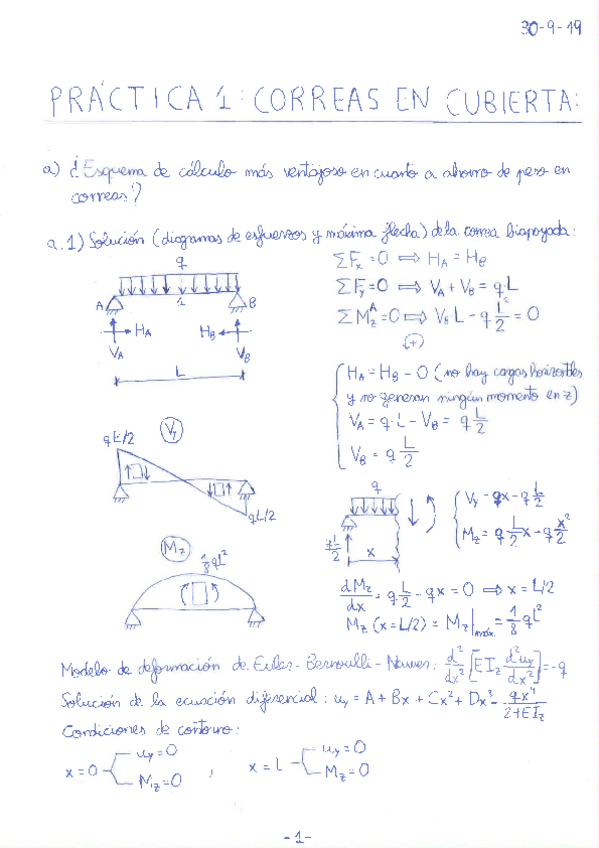 30-9-19
PRÁCTICA 1: CORREAS EN CUBIERTA:
a) ¿Esquema de cálculo más ventajoso en cuanto a ahorro de peso en
correas?
a.1) Solución (diagramas de esfuerzos y máxima flecha) de la correa biapoyada:
q
A 1 B
H_A H_B
V_A V_B
L
ΣF_x = 0 ⟹ H_A = H_B
ΣF_y = 0 ⟹ V_A + V_B = q·L
ΣM_z^A = 0 ⟹ V_B L - q L²/2 = 0
(+)
H_A = H_B = 0 (no hay cargas horizontales
y no generan ningún momento en z)
V_A = q·L - V_B = q L/2
V_B = q L/2
V_y
qL/2
qL/2
q
qL/2
x
V_y = qx - q L/2
M_z = q L/2 x - q x²/2
M_z
1/8 qL²
dM_z/dx = q L/2 - qx = 0 ⟹ x = L/2
M_z (x = L/2) = M_z|máx = 1/8 qL²
Modelo de deformación de Euler-Bernoulli-Navier: d²/dx² [EI_z d²u_y/dx²] = -q
Solución de la ecuación diferencial: u_y = A + Bx + Cx² + Dx³ - qx⁴/24EI_z
Condiciones de contorno:
x = 0 u_y = 0 M_z = 0 , x = L u_y = 0 M_z = 0
-1-